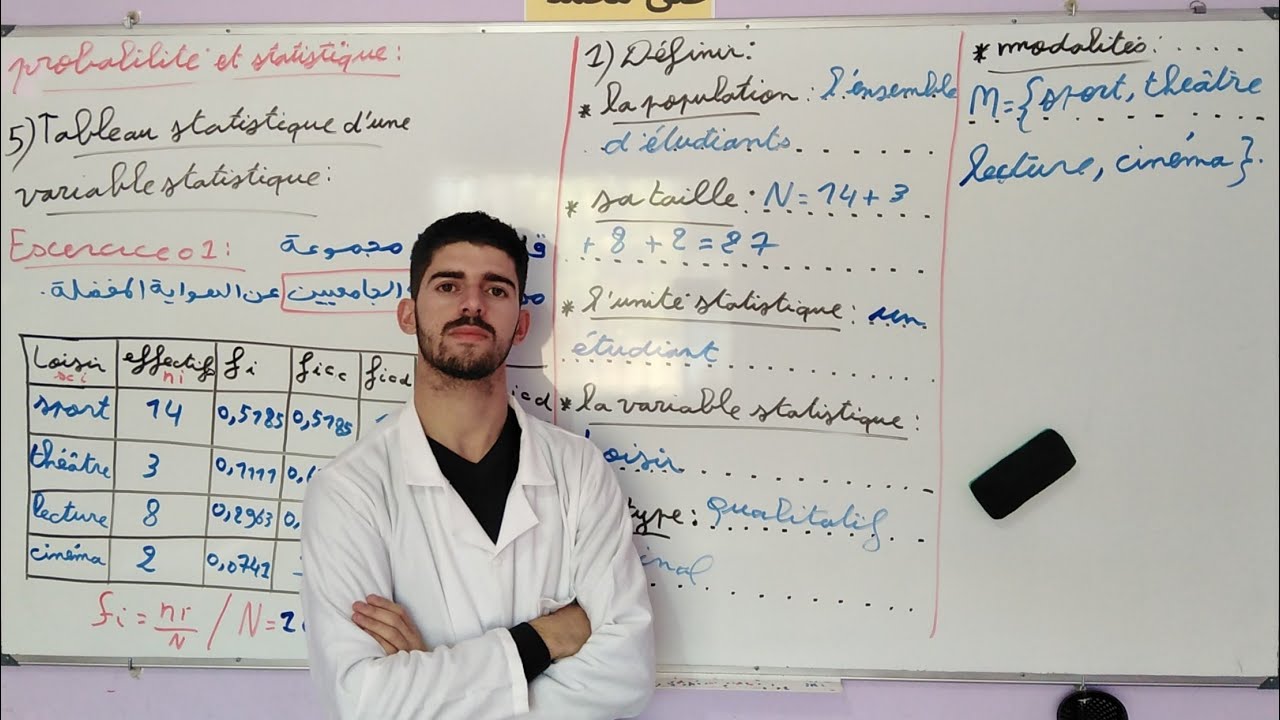 probabilité et statistique:
5) Tableau statistique d'une
variable statistique:
Exercice 01:
مجموعة
الجامعيين عن الهواية المفضلة.
Loisir xi effectifs ni fi ficc ficd
sport 14 0,5185 0,5185
théâtre 3 0,1111
lecture 8 0,2963
cinéma 2 0,0741
fi = ni/N / N=2
1) Définir:
* la population: l'ensemble
d'étudiants
* sa taille: N = 14 + 3
+ 8 + 2 = 27
* l'unité statistique: un
étudiant
* la variable statistique:
Loisir
type: qualitatif
inal
* modalités: ....
M={sport, théâtre
lecture, cinéma}.